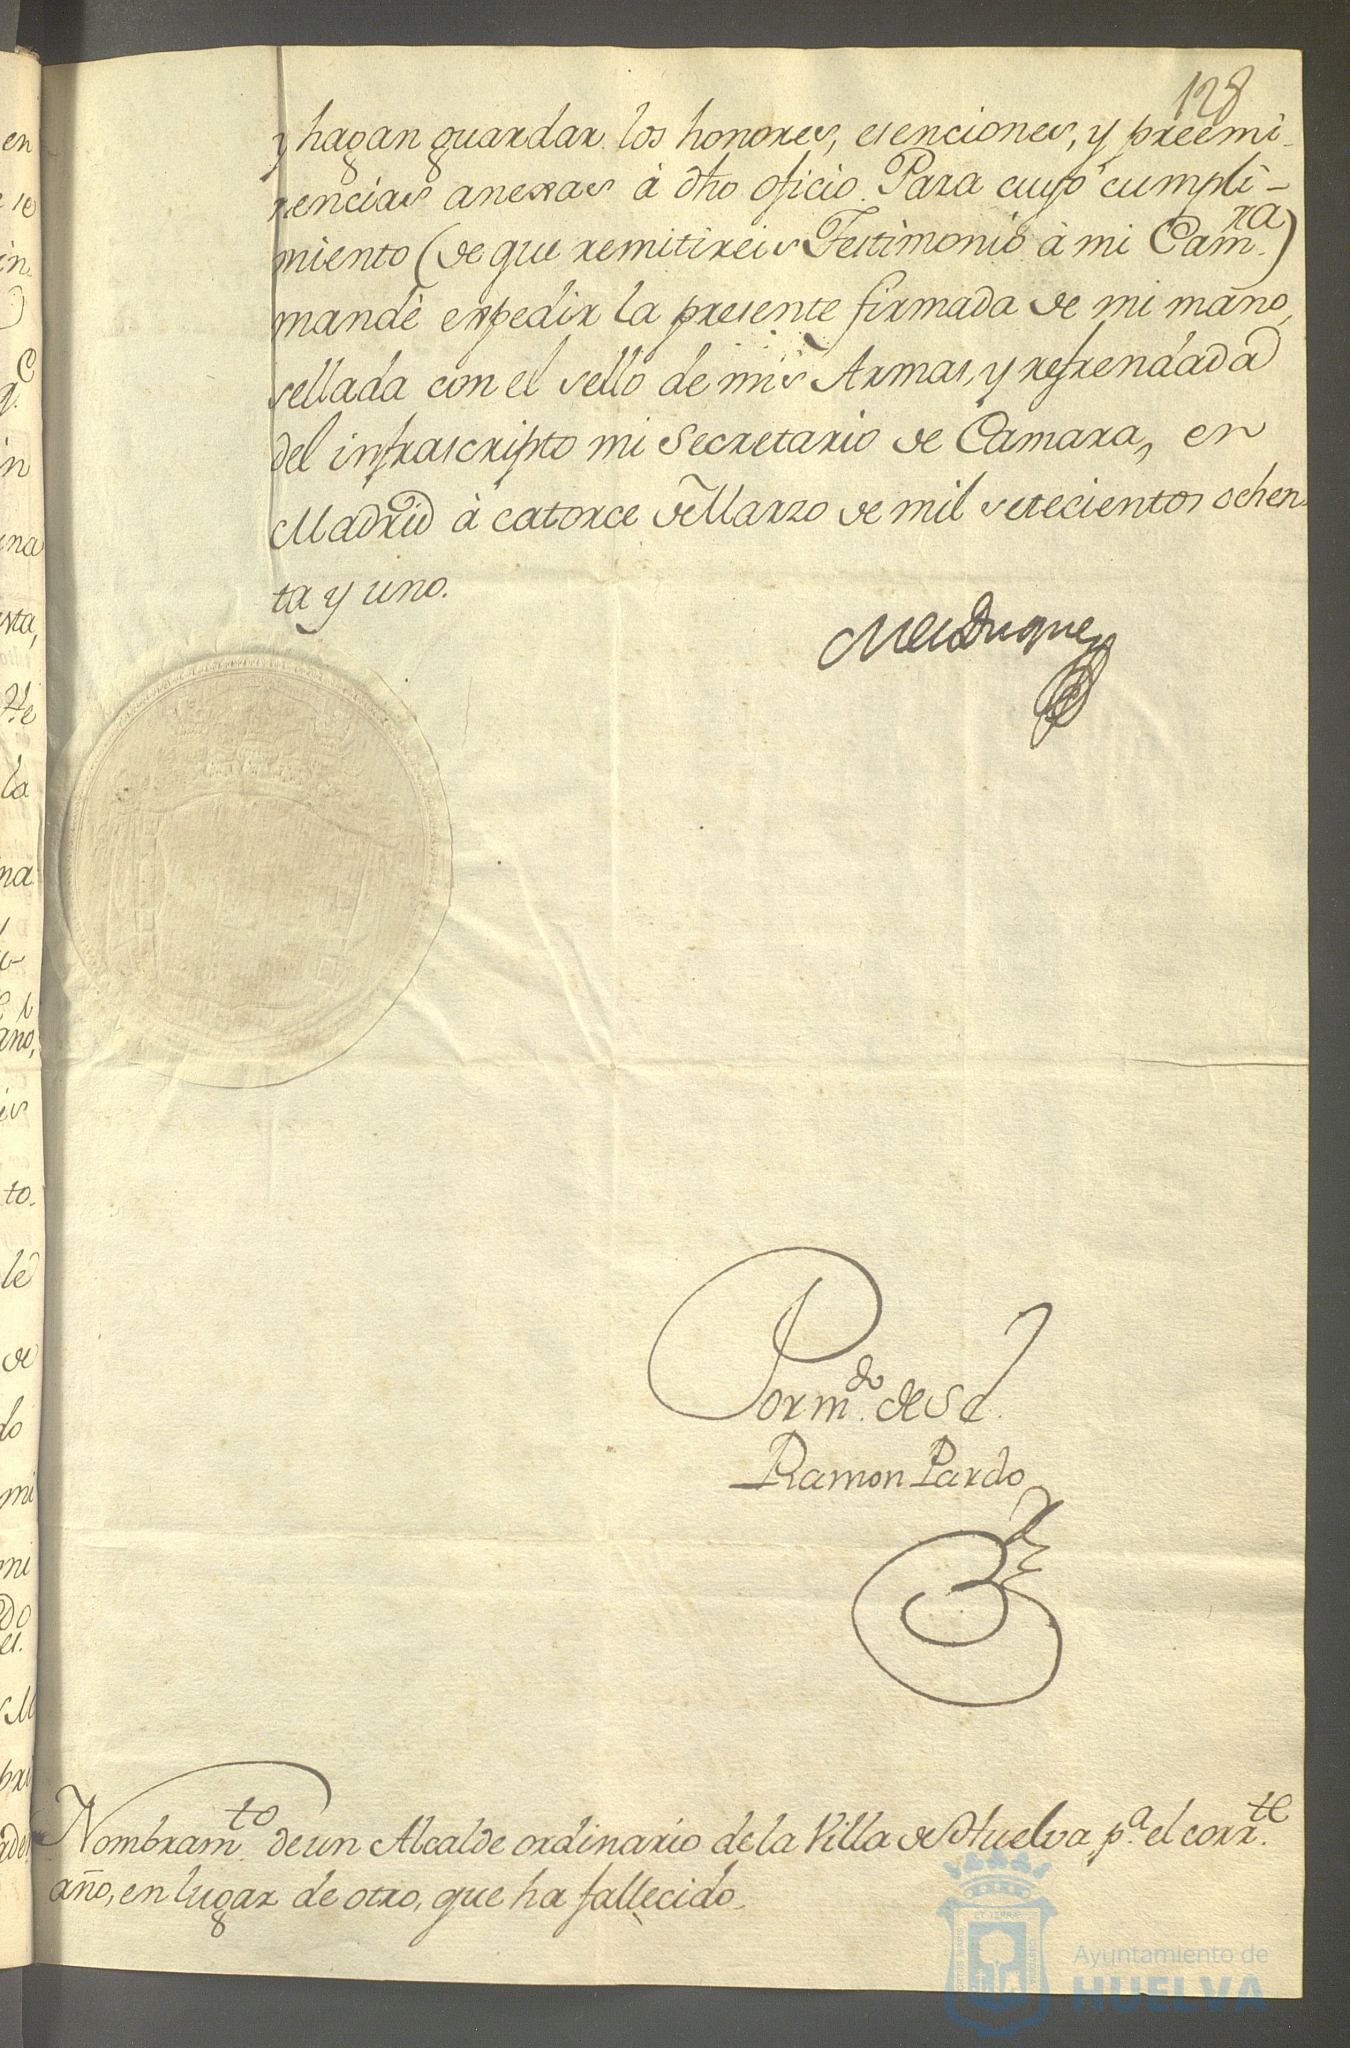 128
y hagan guardar los honores, esenciones, y preemi-
nencias anexas à dho oficio. Para cuyo cumpli-
miento (de que remitireis Testimonio à mi Cam.ra)
mandè expedir la presente firmada de mi mano,
sellada con el sello de mis Armas, y refrendada
del infrascripto mi Secretario de Camara, en
Madrid à catorce de Marzo de mil setecientos ochen-
ta y uno.
Por m.do de S E.
Ramon Pardo
Nombram.to de un Alcalde ordinario de la Villa de Huelva p.a el corr.te
año, en lugar de otro, que ha fallecido.
Ayuntamiento de
HUELVA